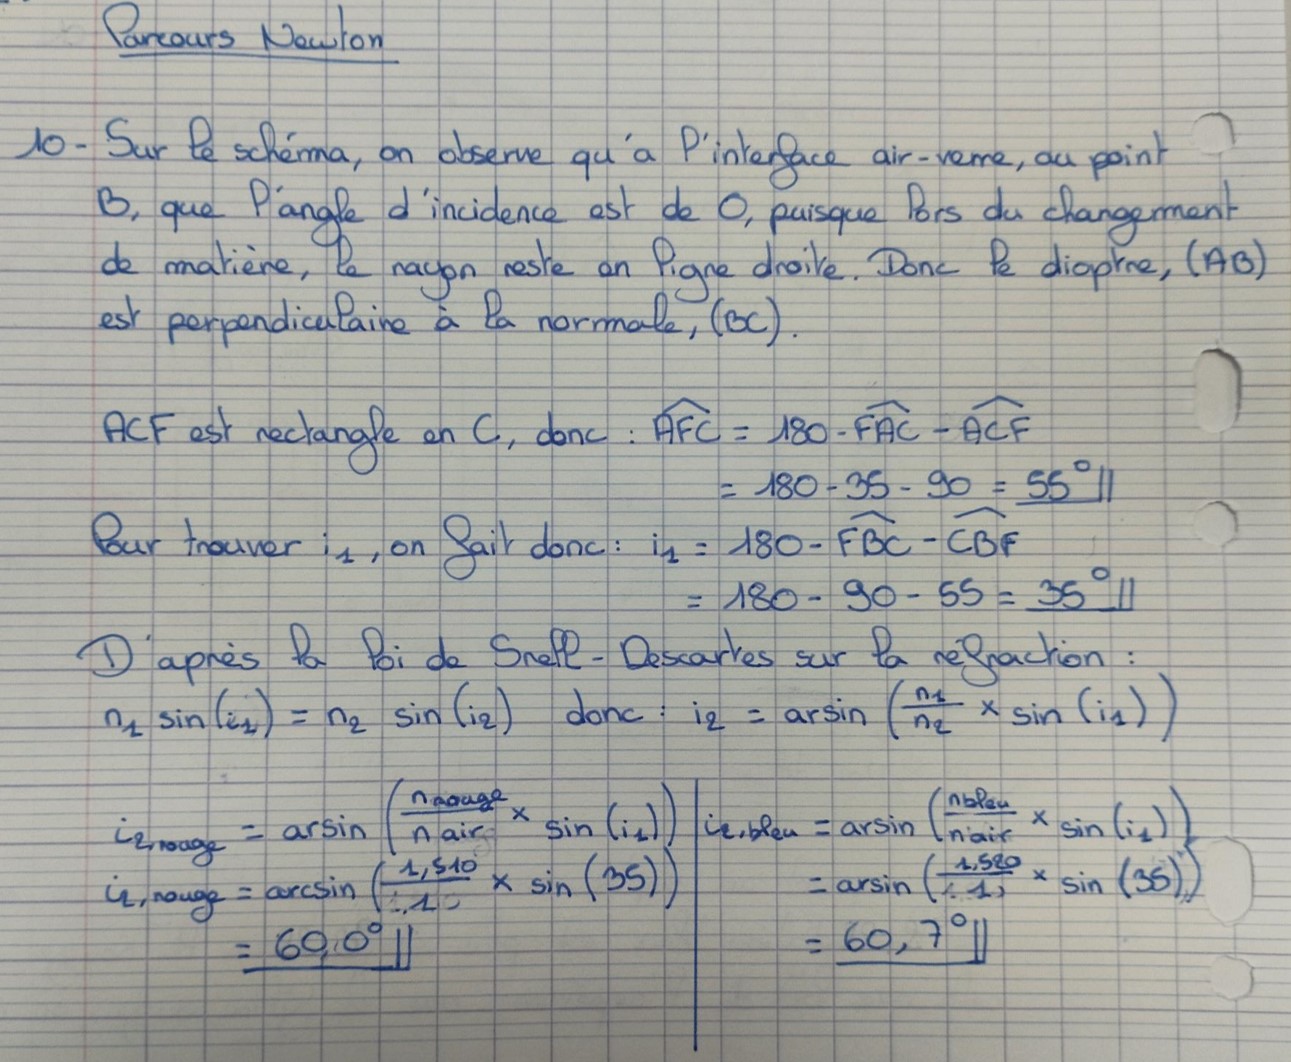 Parcours Newton
10- Sur le schéma, on observe qu'à l'interface air-verre, au point
B, que l'angle d'incidence est de 0, puisque lors du changement
de matière, le rayon reste en ligne droite. Donc le dioptre, (AB)
est perpendiculaire à la normale, (BC).
ACF est rectangle en C, donc : AFC = 180 - FAC - ACF
= 180 - 35 - 90 = 55°
Pour trouver i1, on fait donc : i1 = 180 - FBC - CBF
= 180 - 90 - 55 = 35°
D'après la loi de Snell-Descartes sur la réfraction :
n1 sin(i1) = n2 sin(i2) donc : i2 = arsin (n1/n2 × sin(i1))
i2,rouge = arsin (nrouge/nair × sin(i1)) i2,bleu = arsin (nbleu/nair × sin(i1))
i2,rouge = arcsin (1,510/1 × sin(35)) = arsin (1,520/1 × sin(35))
= 60,0° = 60,7°